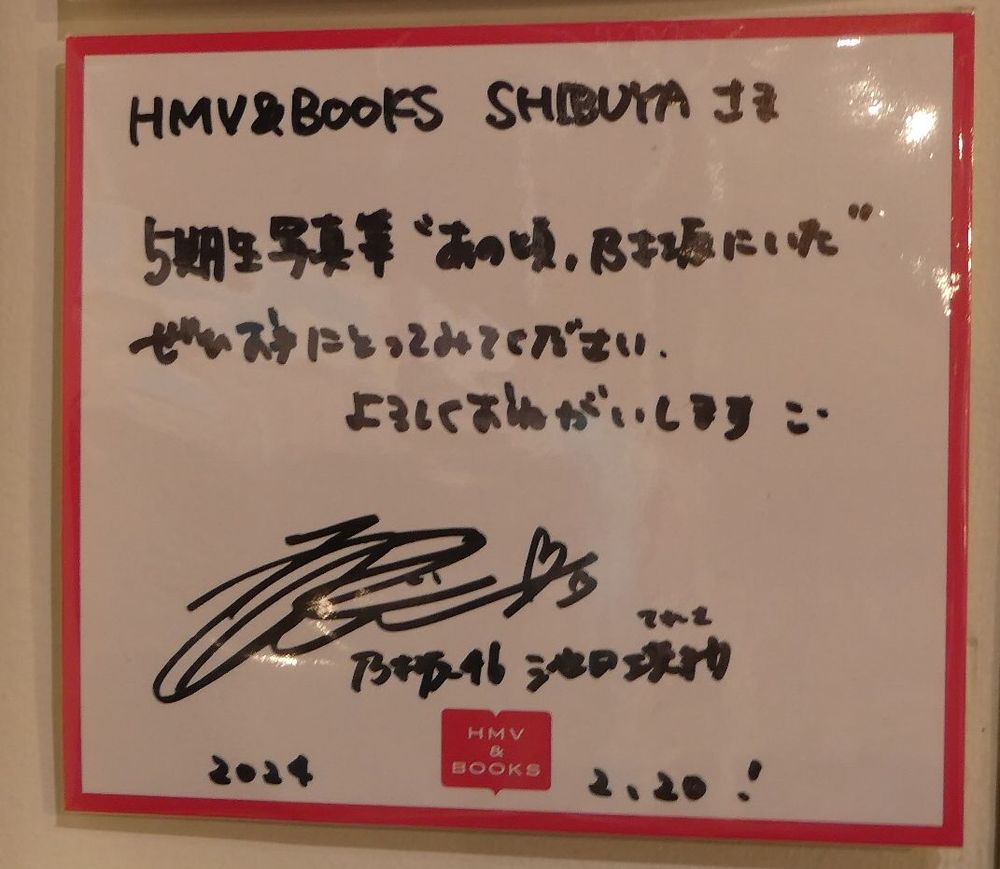 HMV&BOOKS SHIBUYA さま
5期生写真集“あの頃、乃木坂にいた”
ぜひお手にとってみてください.
よろしくおねがいします
てれさ
乃木坂46 池田瑛紗
HMV
&
BOOKS
2024 2.20!